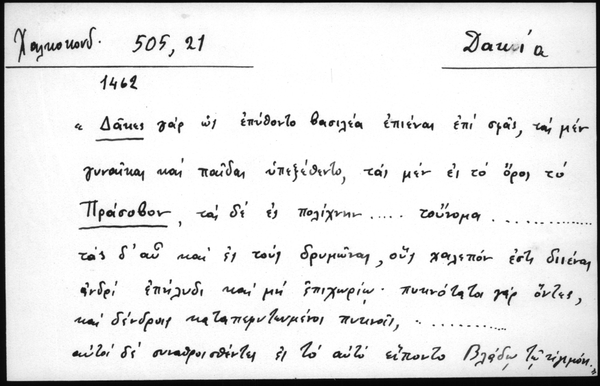 Χαλκοκονδ. 505, 21 Δακία
1462
« Δᾶκες γάρ ὡς ἐπύθοντο βασιλέα ἐπιέναι ἐπί σφᾶς, τάς μέν
γυναῖκας καί παῖδας ὑπεξέθεντο, τάς μέν ἐς τό ὄρος τό
Πράσοβον, τάς δέ ἐς πολίχνην ..... τοὔνομα ..............
τάς δ'αὖ καί ἐς τούς δρυμῶνας, οὕς χαλεπόν ἐστι διιέναι
ἀνδρί ἐπήλυδι καί μή ἐπιχωρίῳ· πυκνότατοι γάρ ὄντες,
καί δένδροις καταπεφυτευμένοι πυκνοῖς, ............
αὐτοί δέ συναθροισθέντες ἐς τό αὐτό εἵποντο Βλάδῳ τῷ ἡγεμόνι. »